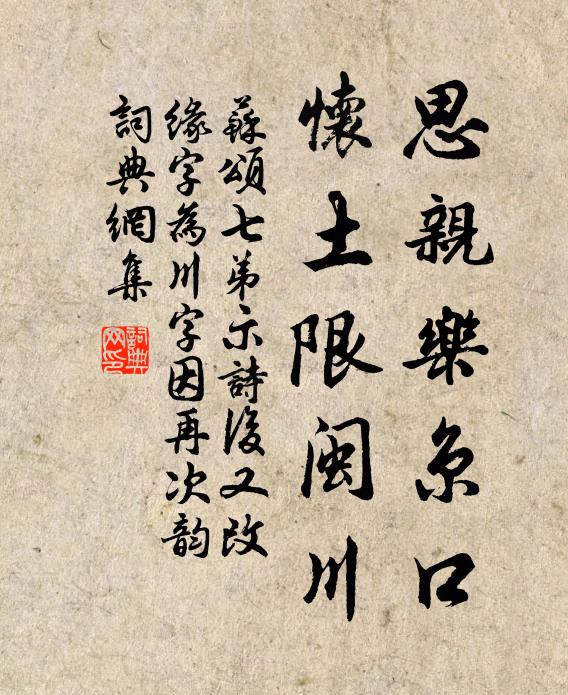 思親樂京口
懷土限閩川
蘇頌七弟示詩後又改
緣字為川字因再次韵
詞典網集
詞典
网印